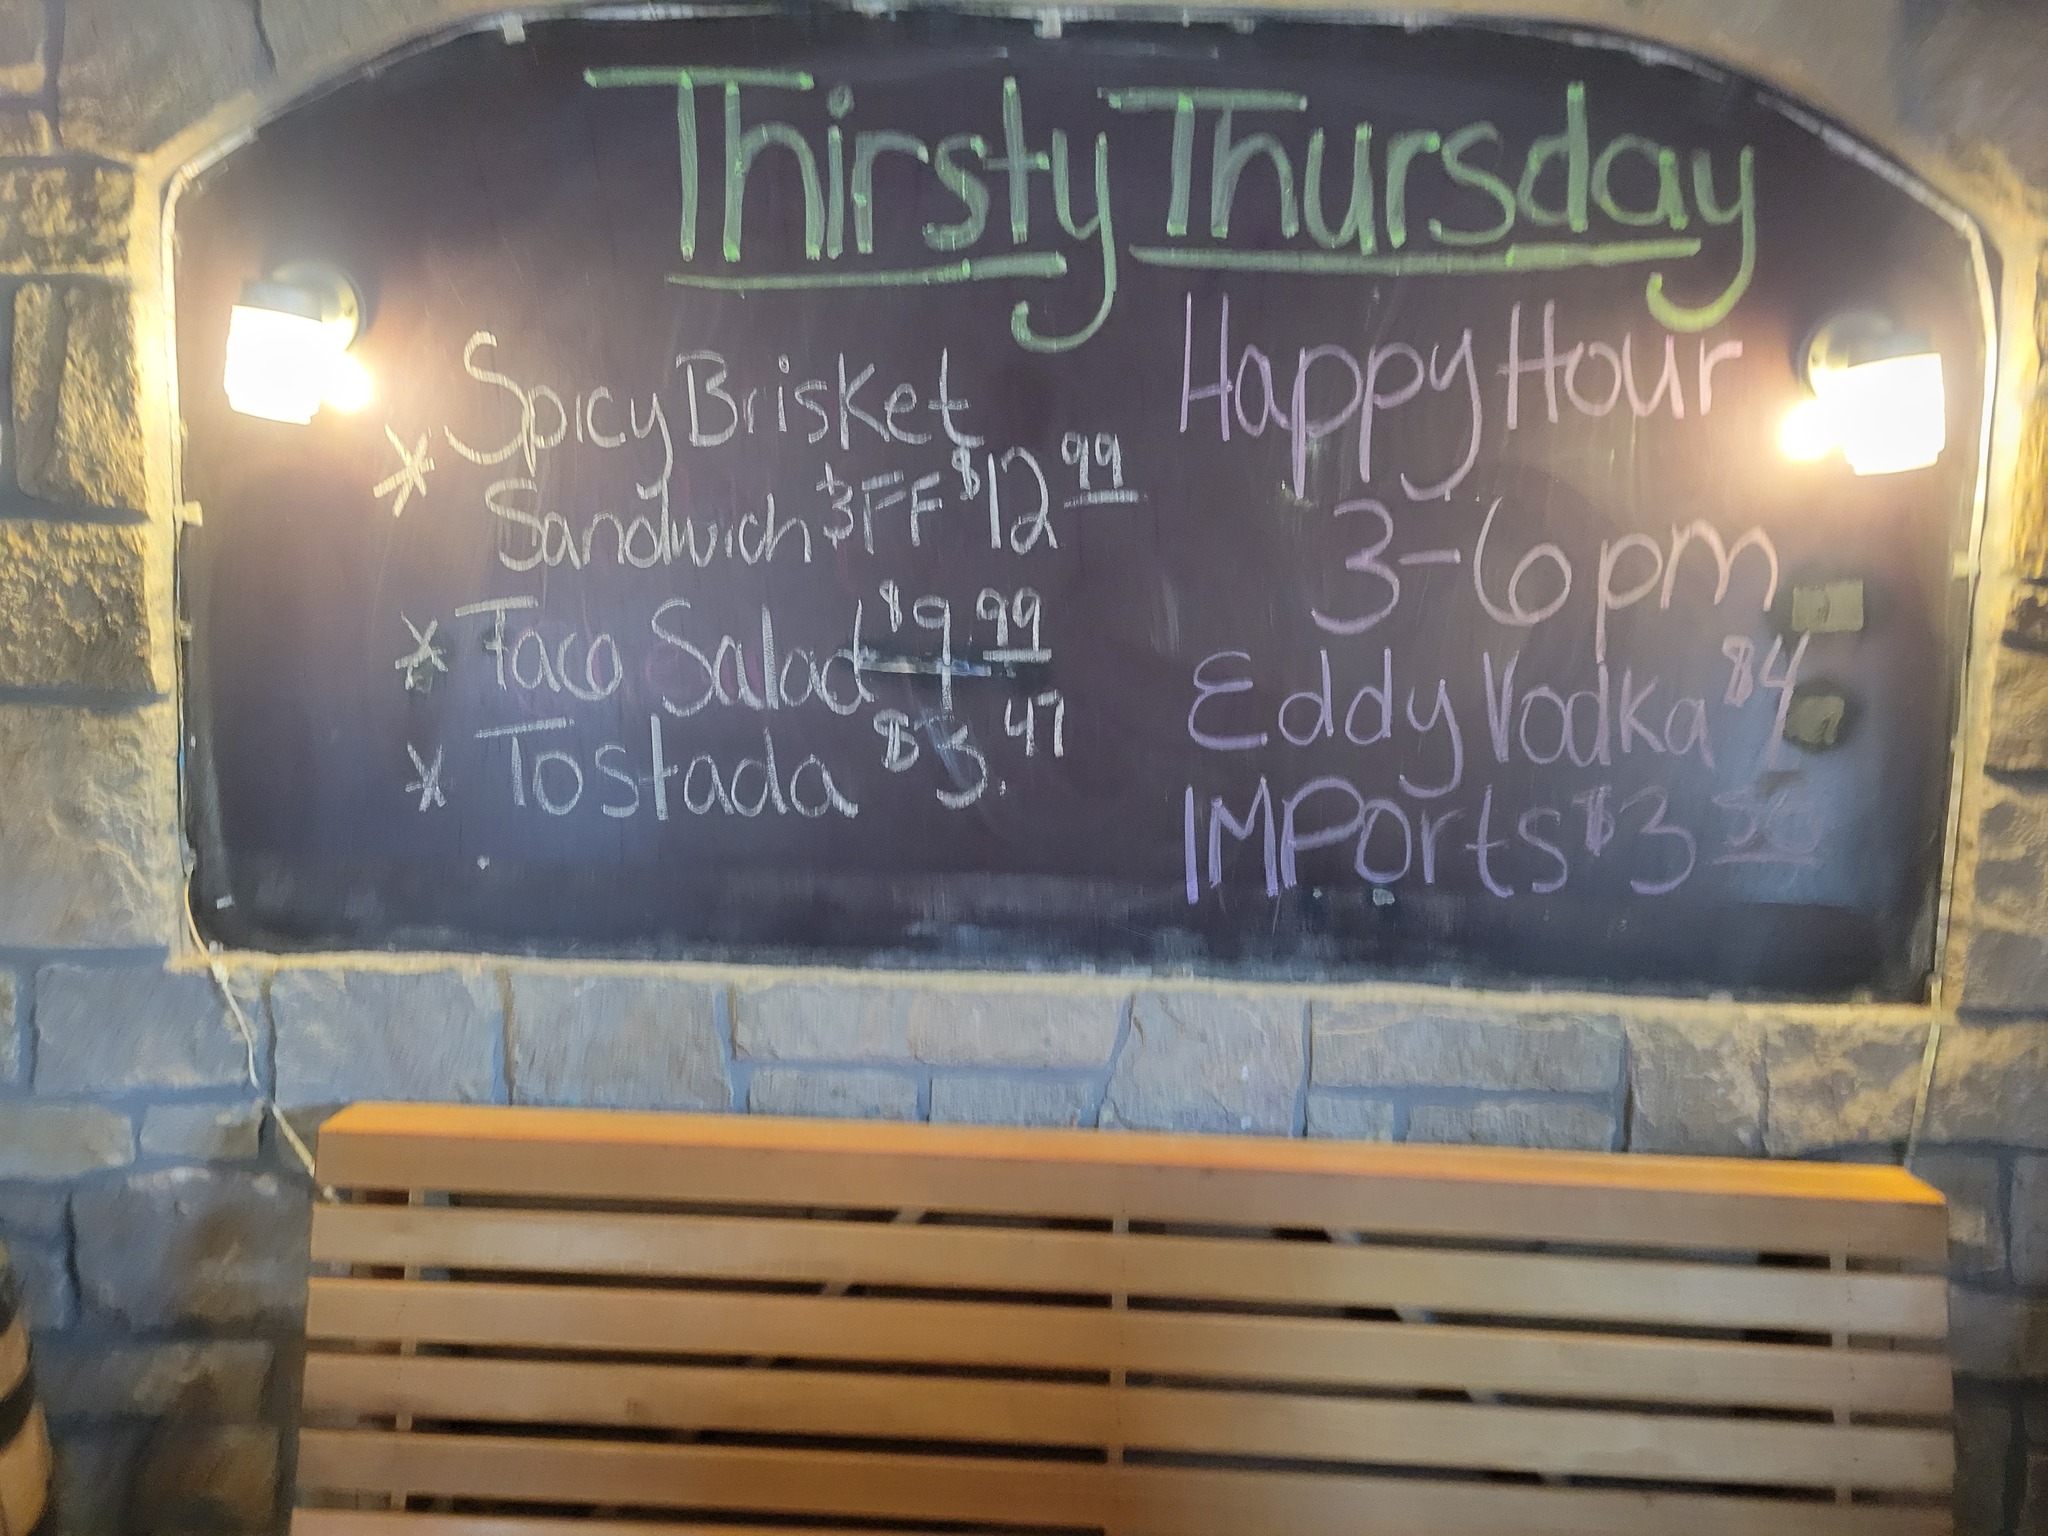 Thirsty Thursday
Spicy Brisket
* Sandwich & FF $12.99
* Taco Salad $9.99
* Tostada $3.47
Happy Hour
3-6pm
Eddy Vodka $4
IMPorts $3.50